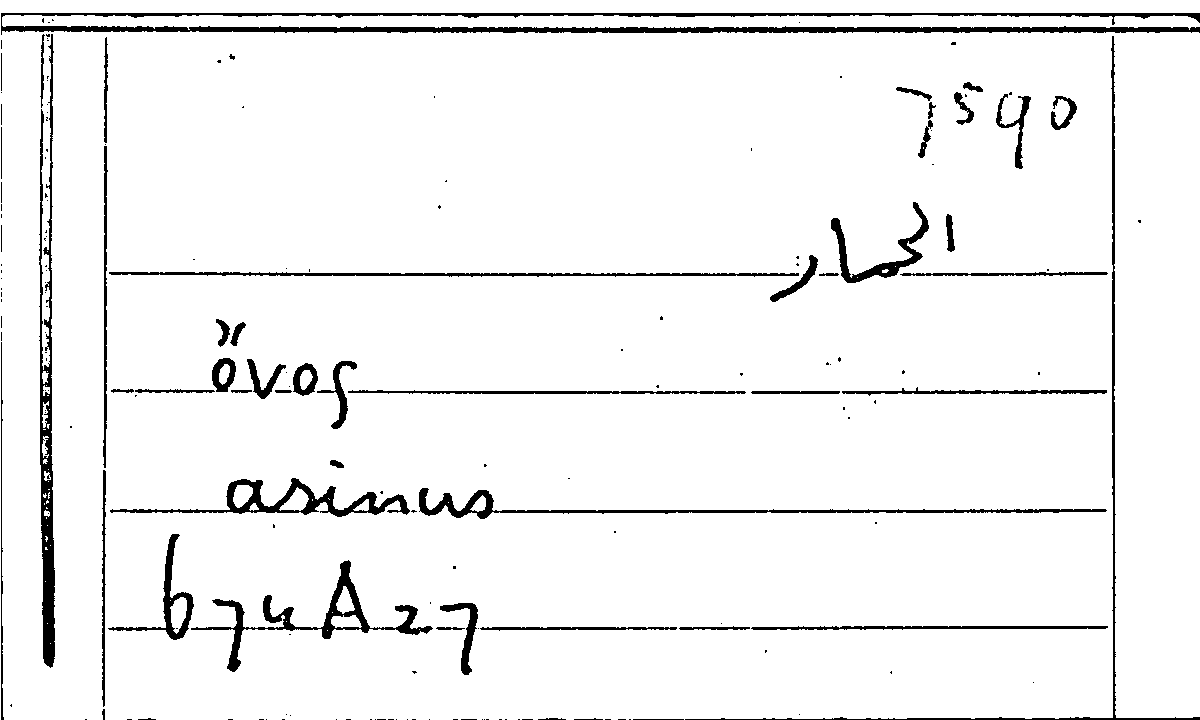 7590
الحمار
ὄνος
asinus
674A27